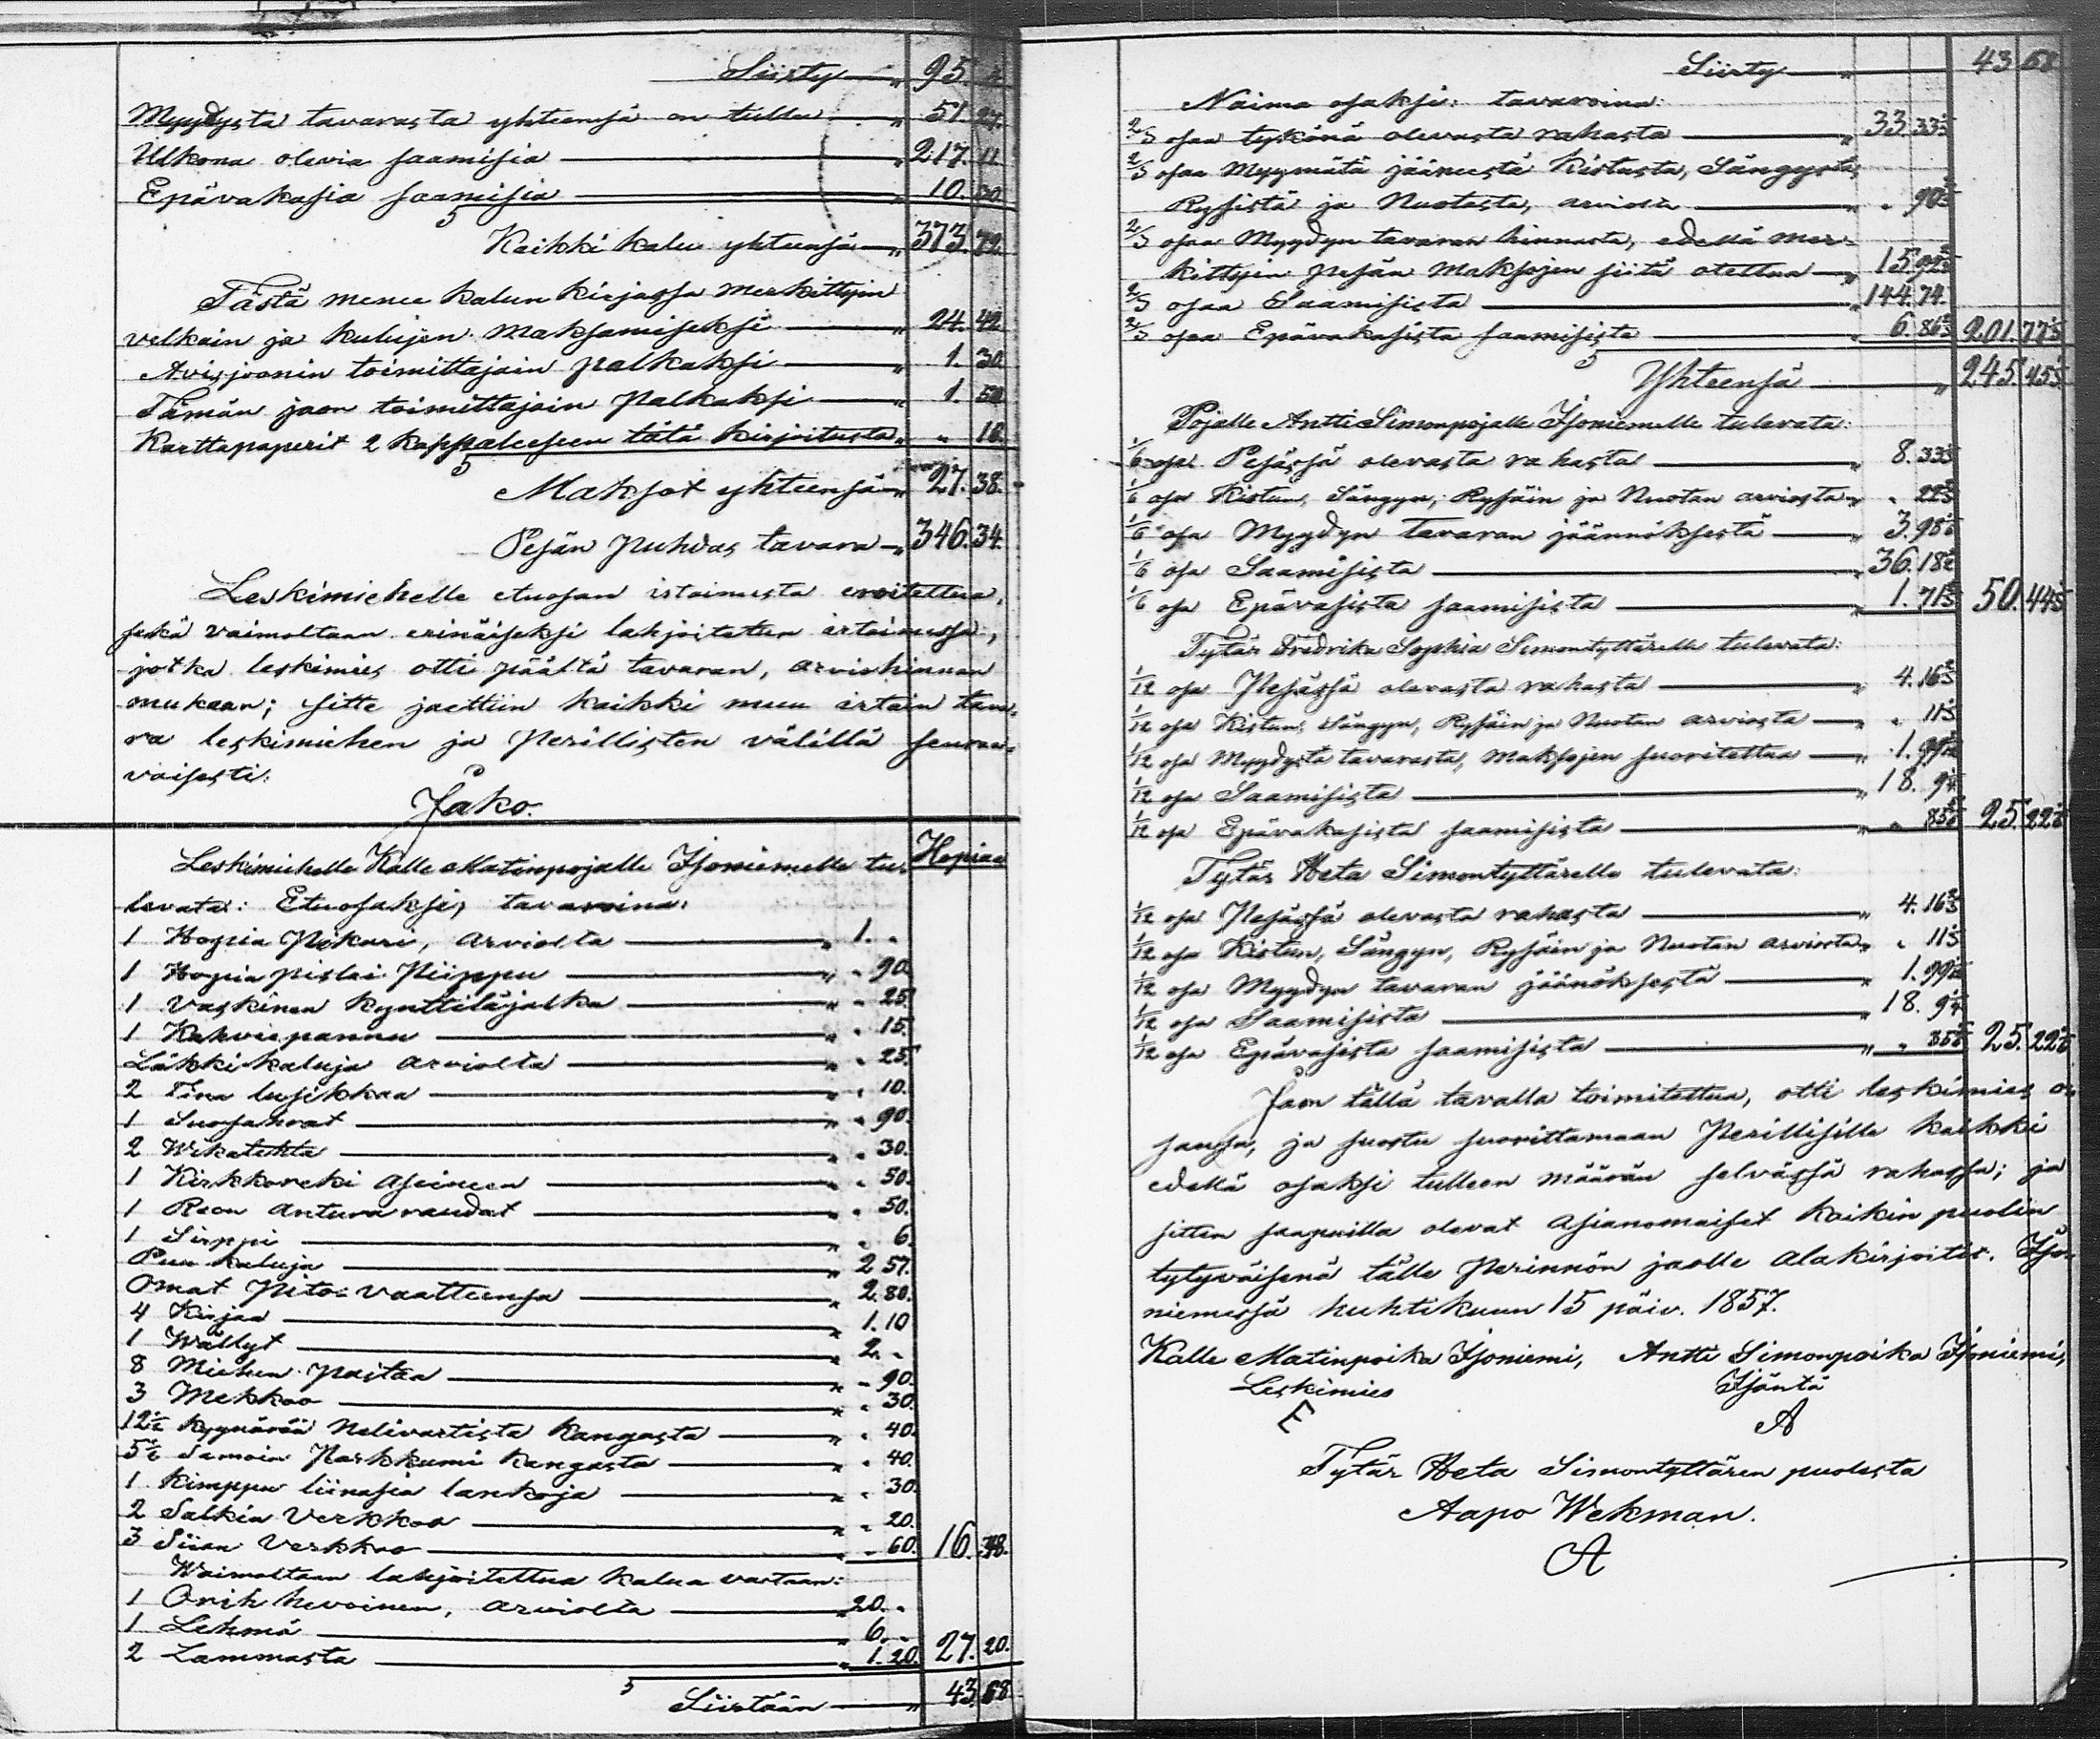 Siirty — „ 95
Myydystä tavarasta yhteensä on tullu — „ 51. 27.
Ulkona olevia saamisia — „ 217. 11
Epävakasia saamisia — „ 10. 30.
S
Kaikki kalu yhteensä — „ 373. 72.
Tästä menee kalun kirjassa merkittyin
velkain ja kulujen maksamiseksi — „ 24. 42
Avisjoonin toimittajain palkaksi — „ 1. 30.
Tämän jaon toimittajain palkaksi — „ 1. 50
Karttapaperit 2 kappaleeseen tätä kirjoitusta „ „ 16.
S
Maksot yhteensä „ 27. 38.
Pesän puhdas tavara — „ 346. 34.
Leskimiehelle etuosan irtaimesta eroitettua,
sekä vaimoltaan erinäiseksi lahjoitetun irtaimessa,
jotka leskimies otti päältä tavaran, arviohinnan
mukaan; sitte jaettiin kaikki muu irtain tava-
ra leskimiehen ja Perillisten välillä seuraa-
vaisesti:
Jako.
Leskimiehelle Kalle Matinpojalle Isoniemelle tu- Hopiaa
levata: Etuosaksi, tavaroina:
1 Hopia Pikari, arviolta — „ 1. „
1 Hopia pislai Piippu — „ „ 90.
1 Vaskinen kynttiläjalka — „ „ 25.
1 Kahvipannu — „ „ 15.
Läkkikaluja arviolta — „ „ 25.
2 Tina lusikkaa — „ „ 10.
1 Suosahvat — „ „ 90.
2 Wikatehta — „ „ 30.
1 Kirkkoreki aseineen — „ „ 50.
1 Reen anturaraudat — „ „ 50.
1 Sirppi — „ „ 6.
Puu kaluja — „ 2 57.
Omat Pito-vaatteensa — „ 2. 80.
4 Kirjaa — „ 1. 10
1 Wällyt — „ 2. „
8 Miehen paitaa — „ „ 90.
3 Mekkoo — „ „ 30.
12½ kyynärää Nelivartista kangasta — „ „ 40.
5½ Samoin Parkkumi kangasta — „ „ 40.
1 Kimppu liinasia lankoja — „ „ 30.
2 Salkia Verkkoa — „ „ 20.
3 Siian Verkkoo — „ „ 60. 16. 48.
Waimoltaan lahjoitettua kalua vastaan:
1 Orih hevoinen, arviolta — „ 20. „
1 Lehmä — „ 6. „
2 Lammasta — „ 1. 20. 27. 20.
S
Siirtään — „ 43. 68
Siirty — „ 43 68
Naima osaksi: tavaroina:
2/3 osaa tykönä olevasta rahasta — „ 33. 33⅓
2/3 osaa Myymätä jääneestä Kistusta, Sängystä,
Rysistä ja Nuotasta, arviosta — „ „ 90⅔
2/3 osaa Myydyn tavaran hinnasta, edellä mer-
kittyin pesän maksojen siitä otettua — „ 15. 92⅔
2/3 osaa Saamisista — „ 144. 74.
2/3 osaa Epävakasista saamisista — „ 6. 86⅔ 201. 77⅓
S
Yhteensä — „ 245. 45⅓
Pojalle Antti Simonpojalle Isoniemelle tulevata:
1/6 osa Pesässä olevasta rahasta — „ 8. 33⅓
1/6 osa Kistun, Sängyn, Rysäin ja Nuotan arviosta „ „ 22⅔
1/6 osa Myydyn tavaran jäännöksestä — „ 3. 98⅙
1/6 osa Saamisista — „ 36. 18½
1/6 osa Epävasista saamisista — „ 1. 71⅔ 50. 44⅓
Tytär Fredrika Sophia Simontyttärelle tulevata:
1/12 osa Pesässä olevasta rahasta — „ 4. 16⅔
1/12 osa Kistun, Sängyn, Rysäin ja Nuotan arviosta — „ „ 11⅓
1/12 osa Myydystä tavarasta, maksojen suoritettua — „ 1. 99 1/12
1/12 osa Saamisista — „ 18. 9¼
1/12 osa Epävakasista saamisista — „ „ 85⅚ 25. 22⅙
Tytär Heta Simontyttärelle tulevata:
1/12 osa Pesässä olevasta rahasta — „ 4. 16⅔
1/12 osa Kistun, Sängyn, Rysäin ja Nuotan arviosta „ „ 11⅓
1/12 osa Myydyn tavaran jäänöksestä — „ 1. 99 1/12
1/12 osa Saamisista — „ 18. 9¼
1/12 osa Epävasista saamisista — „ „ 85⅚ 25. 22⅙
Jaon tällä tavalla toimitettua, otti leskimies o-
sansa, ja suostu suorittamaan Perillisille kaikki
edellä osaksi tulleen määrän selvässä rahassa; ja
sitten saapuilla olevat asianomaiset kaikin puolin
tytyväisenä tälle Perinnön jaolle alakirjoitit. Iso-
niemessä huhtikuun 15 päiv. 1857.
Kalle Matinpoika Isoniemi, Antti Simonpoika Isoniemi,
Leskimies Isäntä
E A
Tytär Heta Simontyttären puolesta
Aapo Wekman.
A